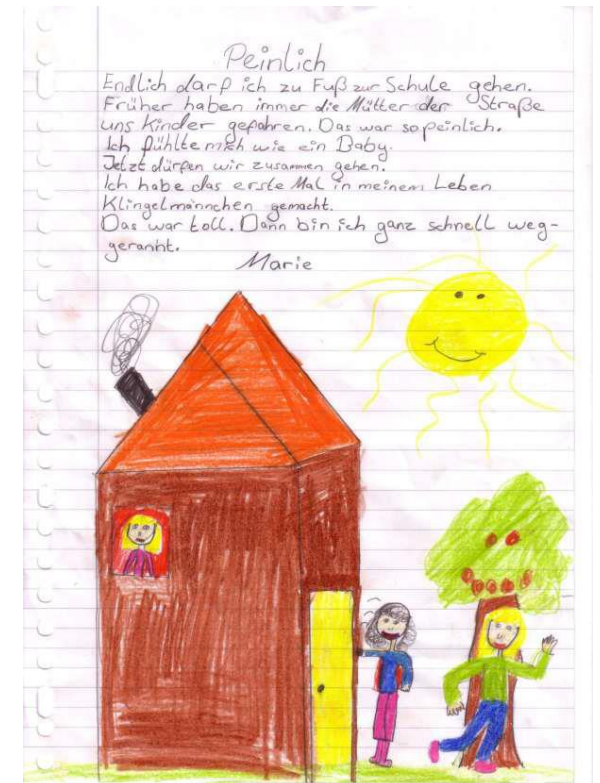 Peinlich
Endlich darf ich zu Fuß zur Schule gehen.
Früher haben immer die Mütter der Straße
uns Kinder gefahren. Das war so peinlich.
Ich fühlte mich wie ein Baby.
Jetzt dürfen wir zusammen gehen.
Ich habe das erste Mal in meinem Leben
Klingelmännchen gemacht.
Das war toll. Dann bin ich ganz schnell weg-
gerannt.
Marie